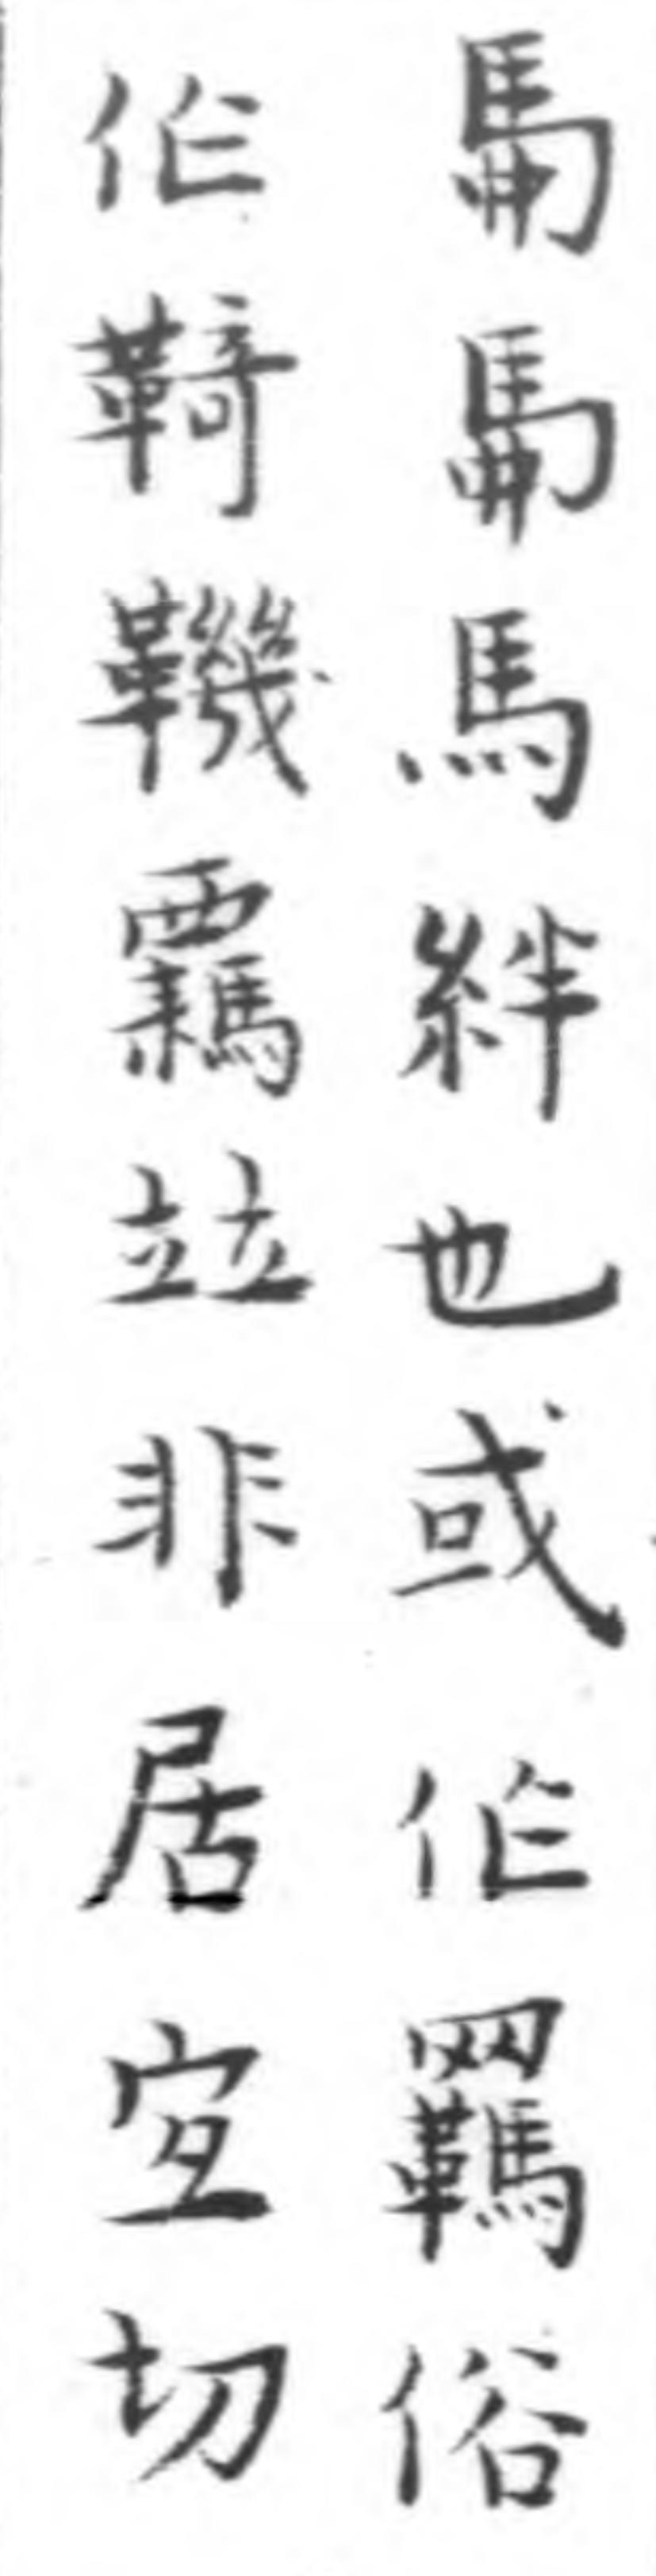 馽馽馬絆也或作羈俗
作䩭鞿覊竝非居宐切